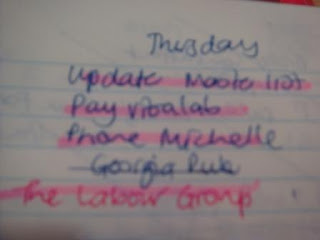 Thursday
Update Maste list
Pay vitalab
Phone Michelle
Georgia Rule
The Labour Group